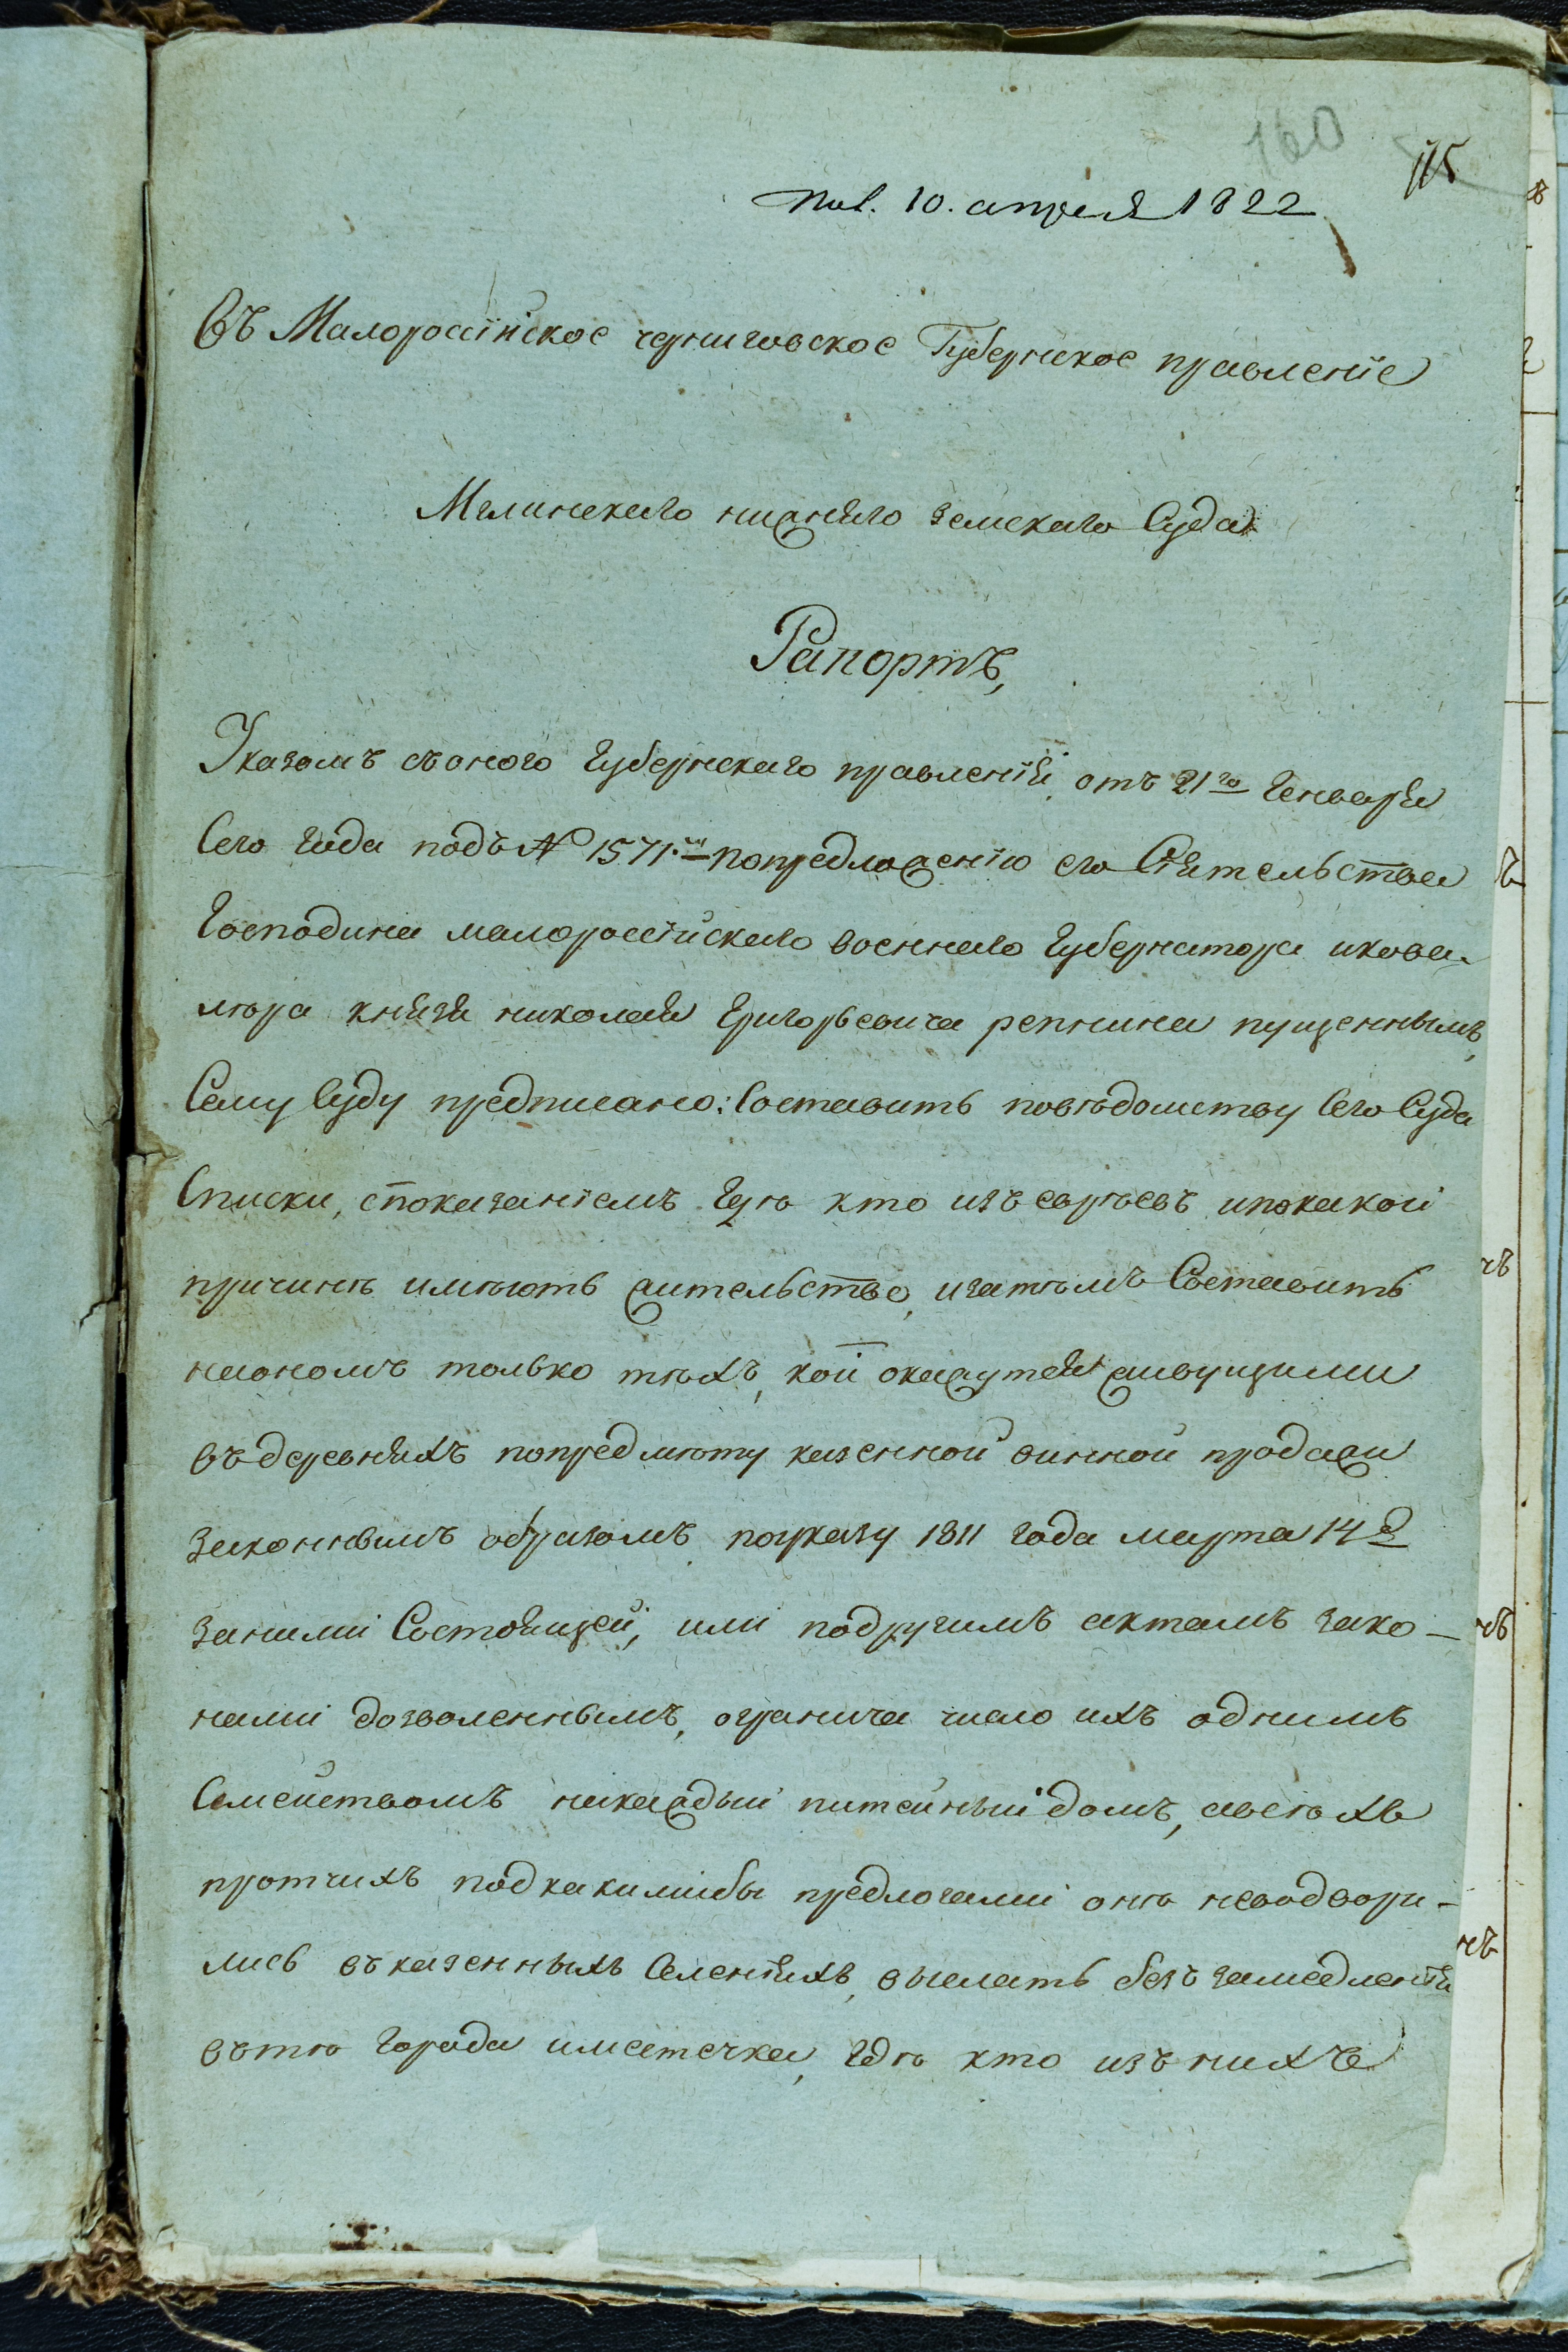 160
115
Пол. 10. апреля 1822
Въ Малороссійское черниговское Губернское правленіе
Мглинского нижняго земского Суда
Рапортъ,
Указомъ съоного Губернского правленія, отъ 21го Генваря
Сего года подъ № 1571.мъ попредложенію его Сіятельства
Господина малороссійского военного Губернатора икова-
лѣра князя николая Григорьевича репнина пущеннымъ,
Сему Суду предписано: Составить повѣдомству Сего Суда
Списки, споказаніемъ Гдѣ кто изъ евреевъ ипокакой
причинѣ имѣютъ жительство, изатѣмъ Составить
наономъ только тѣхъ, кои окажутся живущими
въдеревняхъ попредмѣту казенной винной продажи
законнымъ образомъ поуказу 1811 года марта 14 д
заними Состоящей, или подругимъ актамъ зако-
нами дозволеннымъ, огранича число ихъ однимъ
Семействомъ накаждый питейный домъ, авсѣхъ
протчихъ подкакимибы предлогами онѣ неводвори-
лись въказенныхъ Селеніяхъ, выслать безъ замедленія
вътѣ города иместечка, Гдѣ кто изъ нихъ